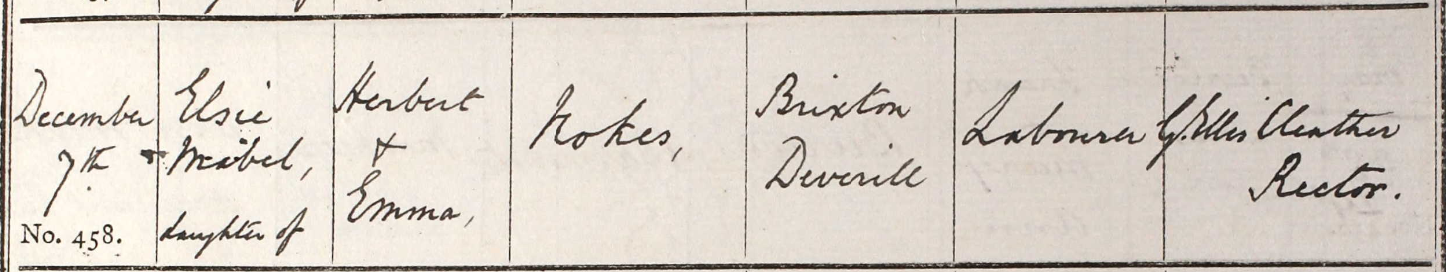 December
7th
No. 458.
Elsie
Mabel,
daughter of
Herbert
&
Emma,
Nokes,
Brixton
Deverill
Labourer
G. Ellis Cleather
Rector.